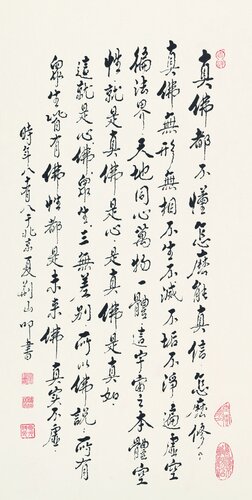 真佛都不懂怎麽能真信怎麽修々
真佛無形無相不生不滅不垢不淨遍虛空
徧法界天地同心萬物一體這宇宙之本體空
性就是真佛是心是真佛是真如
這就是心佛眾生三無差别所以佛說所有
眾生皆有佛性都是未来佛真实不虛
時年八百八于北京夏荆山叩書